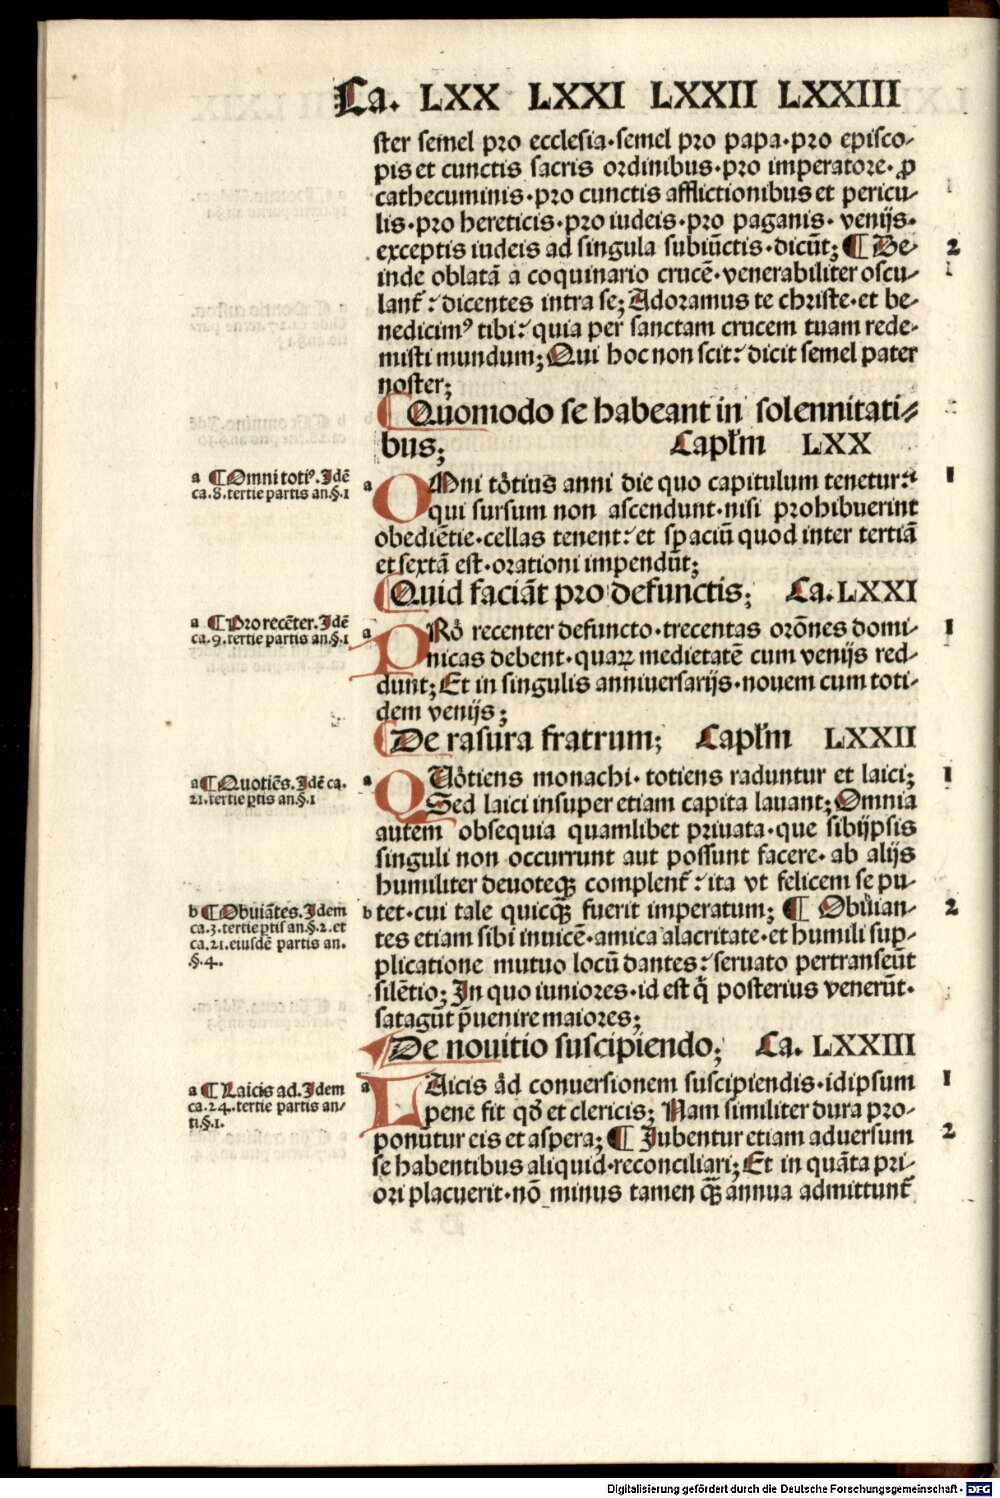 Ca. LXX LXXI LXXII LXXIII
ster semel pro ecclesia·semel pro papa·pro episco-
pis et cunctis sacris ordinibus·pro imperatore·ꝓ
cathecuminis·pro cunctis afflictionibus et pericu-
lis·pro hereticis·pro iudeis·pro paganis·venijs·
exceptis iudeis ad singula subiūctis·dicūt; ¶ De- 2
inde oblatā a coquinario crucē·venerabiliter oscu-
lant᷑:dicentes intra se; Adoramus te christe·et be-
nedicimꝰ tibi:quia per sanctam crucem tuam rede-
misti mundum; Qui hoc non scit:dicit semel pater
noster;
Quomodo se habeant in solennitati⸗
bus; Capl'm LXX
a ¶ Omni totiꝰ. Idē
ca.8.tertie partis an.§.1
a OMni totius anni die quo capitulum tenetur: 1
qui sursum non ascendunt·nisi prohibuerint
obediētie·cellas tenent:et spaciū quod inter tertiā
et sextā est·orationi impendūt;
Quid faciāt pro defunctis; Ca. LXXI
a ¶ Pro recēter. Idē
ca.9.tertie partis an.§.1
a PRo recenter defuncto·trecentas orōnes domi- 1
nicas debent·quaꝝ medietatē cum venijs red-
dunt; Et in singulis anniuersarijs·nouem cum toti-
dem venijs;
De rasura fratrum; Capl'm LXXII
a ¶ Quotiēs. Idē ca.
21.tertie ꝑtis an.§.1
a QUotiens monachi·totiens raduntur et laici; 1
Sed laici insuper etiam capita lauant; Omnia
autem obsequia quamlibet priuata·que sibijpsis
singuli non occurrunt aut possunt facere·ab alijs
humiliter deuoteqꝫ complent᷑:ita vt felicem se pu-
b ¶ Obuiātes. Idem
ca.3.tertie ꝑtis an.§.2.et
ca.21.eiusdē partis an.
.§.4.
b tet·cui tale quicqꝫ̄ fuerit imperatum; ¶ Obuian- 2
tes etiam sibi inuicē·amica alacritate·et humili sup-
plicatione mutuo locū dantes:seruato pertranseūt
silētio; In quo iuniores·id est q̄ posterius venerūt·
satagūt p̄uenire maiores;
De nouitio suscipiendo; Ca. LXXIII
a ¶ Laicis ad. Idem
ca.24.tertie partis an⸗
ti.§.1.
a LAicis ad conuersionem suscipiendis·idipsum 1
pene fit qd̛ et clericis; Nam similiter dura pro-
ponutur eis et aspera; ¶ Jubentur etiam aduersum 2
se habentibus aliquid·reconciliari; Et in quāta pri-
ori placuerit·nō minus tamen qꝫ̄ annua admittunt᷑
Digitalisierung gefördert durch die Deutsche Forschungsgemeinschaft - DFG